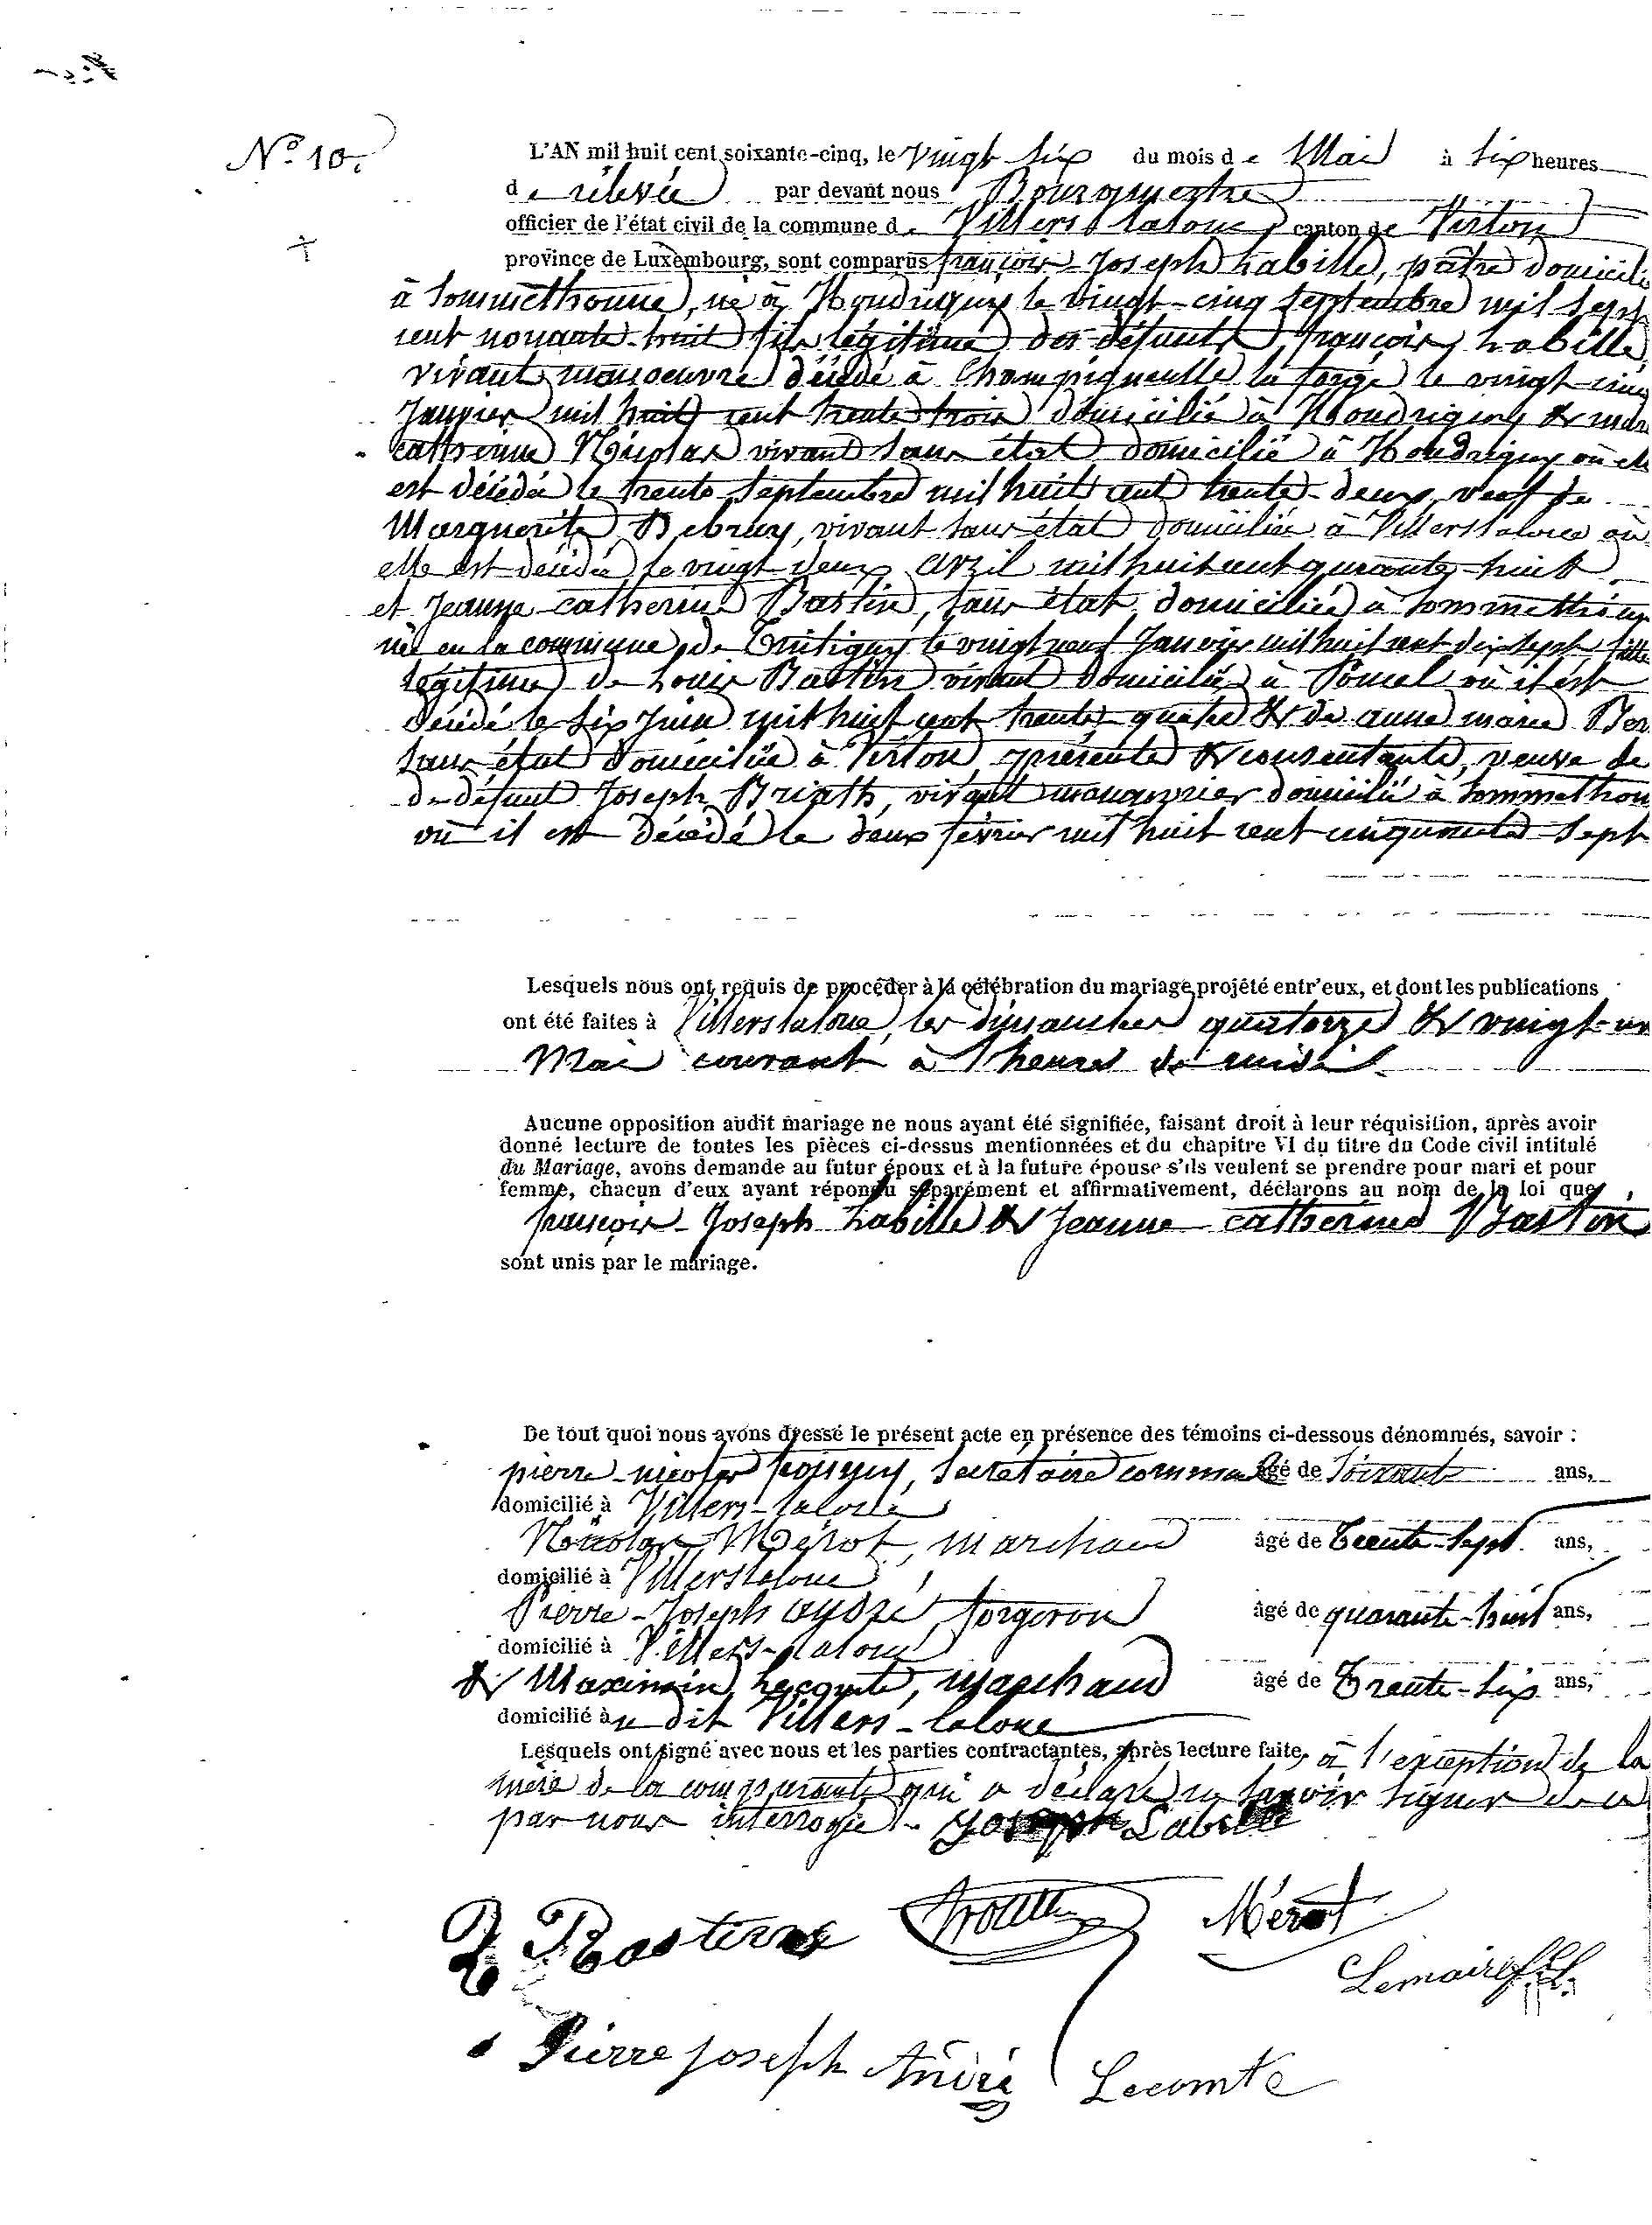 N° 10.
L'AN mil huit cent soixante-cinq, le vingt six du mois de Mai à six heures
de rélevée par devant nous Bourgmestre
officier de l'état civil de la commune de Villers-laloue canton de Virton
province de Luxembourg, sont comparus françois-Joseph Labille, pâtre domicilié
à Sommethonne, né à Houdrigny le vingt-cinq septembre mil sept
cent nonante-huit fils légitime des défunts françois Labille
vivant manoeuvre décédé à Champigneulle la forge le vingt cinq
Janvier mil huit cent trente trois domicilié à Houdrigny & marie
catherine Nicolas vivant sans état domicilié à Houdrigny où elle
est décédée le trente septembre mil huit cent trente-deux, veuf de
Marguerite Debruy, vivant sans état domiciliée à Villerslaloue où
elle est décédée le vingt deux avril mil huit cent quarante-huit
et Jeanne catherine Bastin, sans état domiciliée à Sommethonne
née en la commune de Tintigny le vingt neuf Janvier mil huit cent dix sept, fille
légitime de Louis Bastin vivant domicilié à Poncel où il est
décédé le six Juin mil huit cent trente-quatre & de anne marie
sans état domiciliée à Virton, présente & consentante, veuve de
de défunt Joseph Briath, vivant manouvrier domicilié à Sommethonne
où il est décédé le deux février mil huit cent cinquante sept
Lesquels nous ont requis de procéder à la célébration du mariage projété entr'eux, et dont les publications
ont été faites à Villerslaloue, les dimanches quatorze & vingt-un
Mai courant à l'heure de midi.
Aucune opposition audit mariage ne nous ayant été signifiée, faisant droit à leur réquisition, après avoir
donné lecture de toutes les pièces ci-dessus mentionnées et du chapitre VI du titre du Code civil intitulé
du Mariage, avons demande au futur époux et à la future épouse s'ils veulent se prendre pour mari et pour
femme, chacun d'eux ayant répondu séparément et affirmativement, déclarons au nom de la loi que
françois-Joseph Labille & Jeanne catherine Bastin
sont unis par le mariage.
De tout quoi nous avons dressé le présent acte en présence des témoins ci-dessous dénommés, savoir :
pierre-nicolas secrétaire communal âgé de soixante ans,
domicilié à Villers-laloue
Nicolas Mérot, marchand âgé de Trente-sept ans,
domicilié à Villerslaloue
Pierre-Joseph andré, forgeron âgé de quarante-huit ans,
domicilié à Villers-laloue
& Maximin Lecomte, marchand âgé de Trente-six ans,
domicilié à u dit Villers-laloue
Lesquels ont signé avec nous et les parties contractantes, après lecture faite, à l'exception de la
mère de la comparante qui a déclaré ne savoir signer de ce
par nous interrogée. Joseph Labille
Mérot
Lemaire
Pierre Joseph André Lecomte